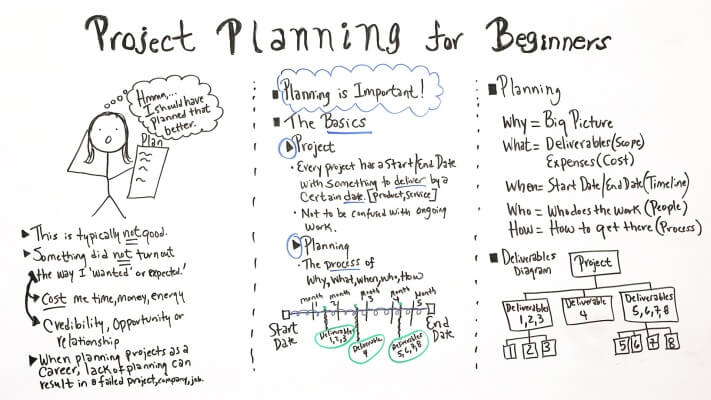 Project Planning for Beginners
Hmmm,...
I should have
planned that
better.
Plan
This is typically not good.
Something did not turn out
the way I 'wanted' or expected.'
Cost me time, money, energy
Credibility, Opportunity or
relationship
When planning projects as a
Career, lack of planning can
result in a failed project, company, job.
Planning is Important!
The Basics
Project
• Every project has a Start/End Date
with something to deliver by a
Certain date. [Product, Service]
• Not to be confused with ongoing
work.
Planning
• The process of
Why, What, When, Who, How
Month 1
Month 2
Month 3
Month 4
Month 5
Start
Date
Deliverables
1, 2, 3
Deliverable
4
Deliverables
5, 6, 7, 8
End
Date
Planning
Why = Big Picture
What = Deliverables (Scope)
Expenses (Cost)
When = Start Date/End Date (Timeline)
Who = Who does the Work (People)
How = How to get there (Process)
Deliverables
Diagram
Project
Deliverables
1, 2, 3
Deliverable
4
Deliverables
5, 6, 7, 8
1 2 3
5 6 7 8